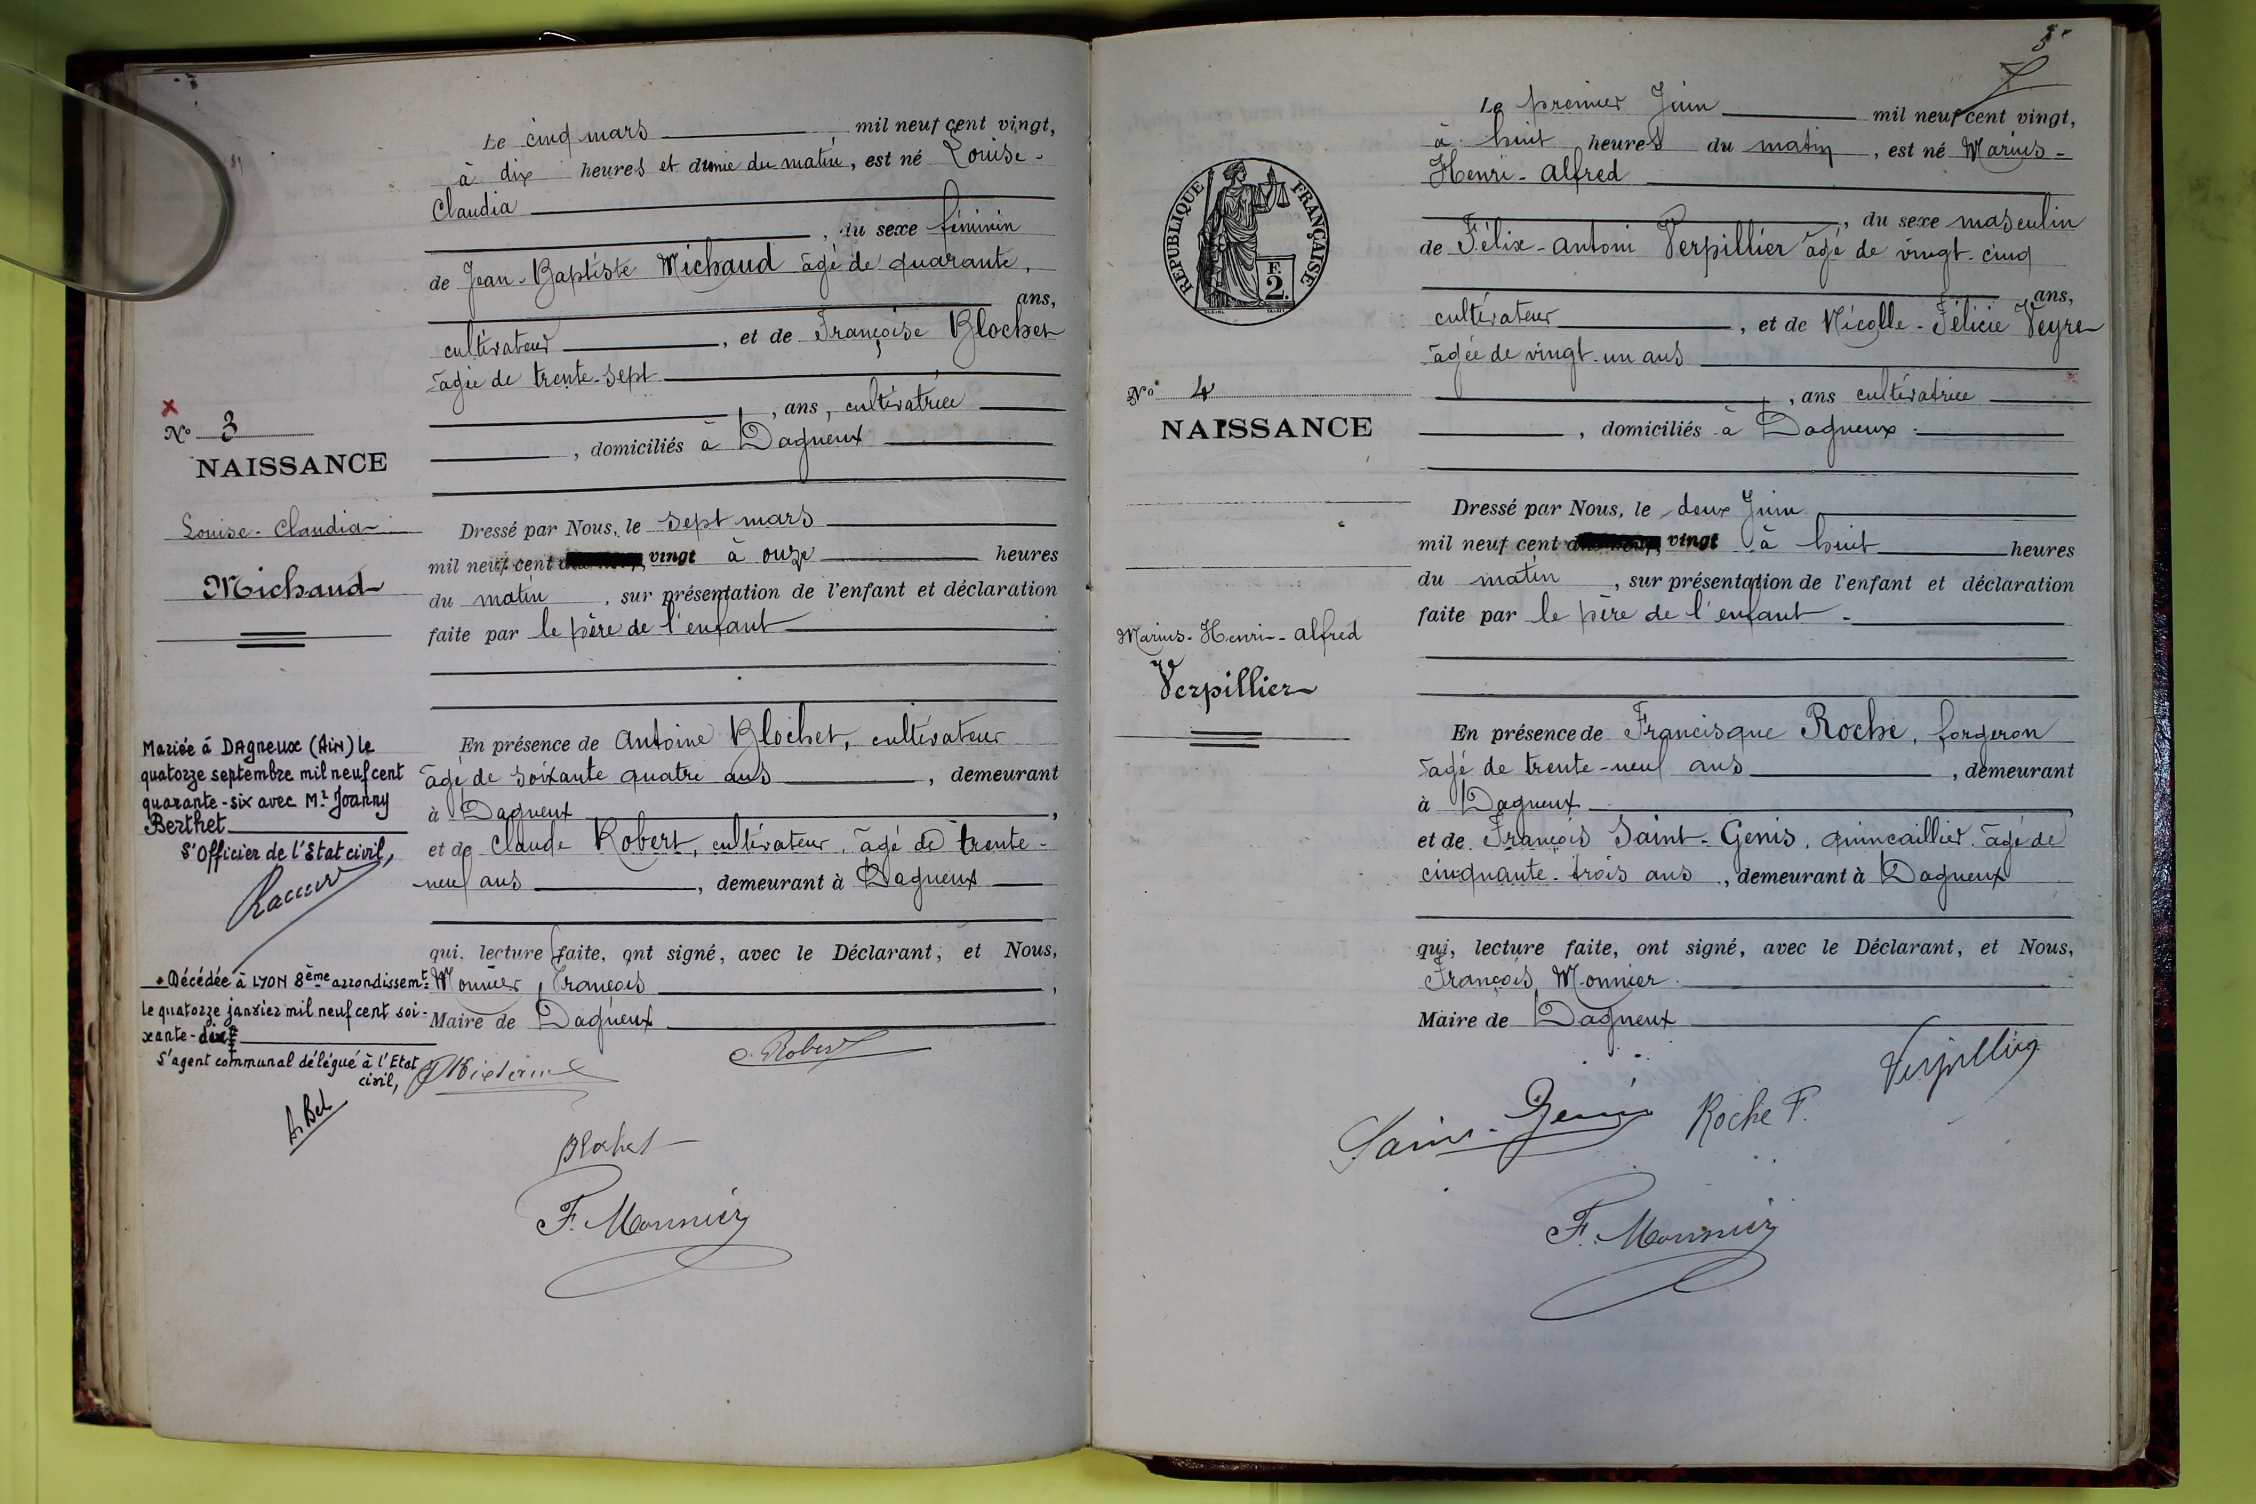 Le cinq mars mil neuf cent vingt,
à dix heures et demie du matin, est né Louise-
Claudia
, du sexe féminin
de Jean-Baptiste Michaud âgé de quarante,
ans,
cultivateur, et de Françoise Blochet
âgée de trente-sept
, ans, cultivatrice
, domiciliés à Dagneux
No 3
NAISSANCE
Louise-Claudia
Michaud
Dressé par Nous, le sept mars
mil neuf cent vingt à onze heures
du matin, sur présentation de l'enfant et déclaration
faite par le père de l'enfant
En présence de Antoine Blochet, cultivateur
âgé de soixante quatre ans, demeurant
à Dagneux,
et de Claude Robert, cultivateur, âgé de trente-
neuf ans, demeurant à Dagneux
qui, lecture faite, ont signé, avec le Déclarant, et Nous,
Monnier François,
Maire de Dagneux
Mariée à Dagneux (Ain) le
quatorze septembre mil neuf cent
quarante-six avec Mr Joanny
Berthet
L'Officier de l'Etat civil,
Décédée à LYON 8ème arrondissemt
le quatorze janvier mil neuf cent soi-
xante-dix
L'agent communal délégué à l'Etat
civil,
A. Bel
C. Robert
Blochet
F. Monnier
5
Le premier Juin mil neuf cent vingt,
à huit heures du matin, est né Marius-
Henri-Alfred
, du sexe masculin
de Félix-Antoni Verpillier âgé de vingt-cinq
ans,
cultivateur, et de Nicolle-Félicie Veyre
âgée de vingt-un ans
, ans cultivatrice
, domiciliés à Dagneux
RÉPUBLIQUE FRANÇAISE
F.
2.
No 4
NAISSANCE
Marius-Henri-Alfred
Verpillier
Dressé par Nous, le deux Juin
mil neuf cent vingt à huit heures
du matin, sur présentation de l'enfant et déclaration
faite par le père de l'enfant
En présence de Francisque Roche, forgeron
âgé de trente-neuf ans, demeurant
à Dagneux,
et de François Saint-Genis, quincaillier âgé de
cinquante-trois ans, demeurant à Dagneux
qui, lecture faite, ont signé, avec le Déclarant, et Nous,
François Monnier
Maire de Dagneux
Verpillier
Saint-Genis Roche F.
F. Monnier